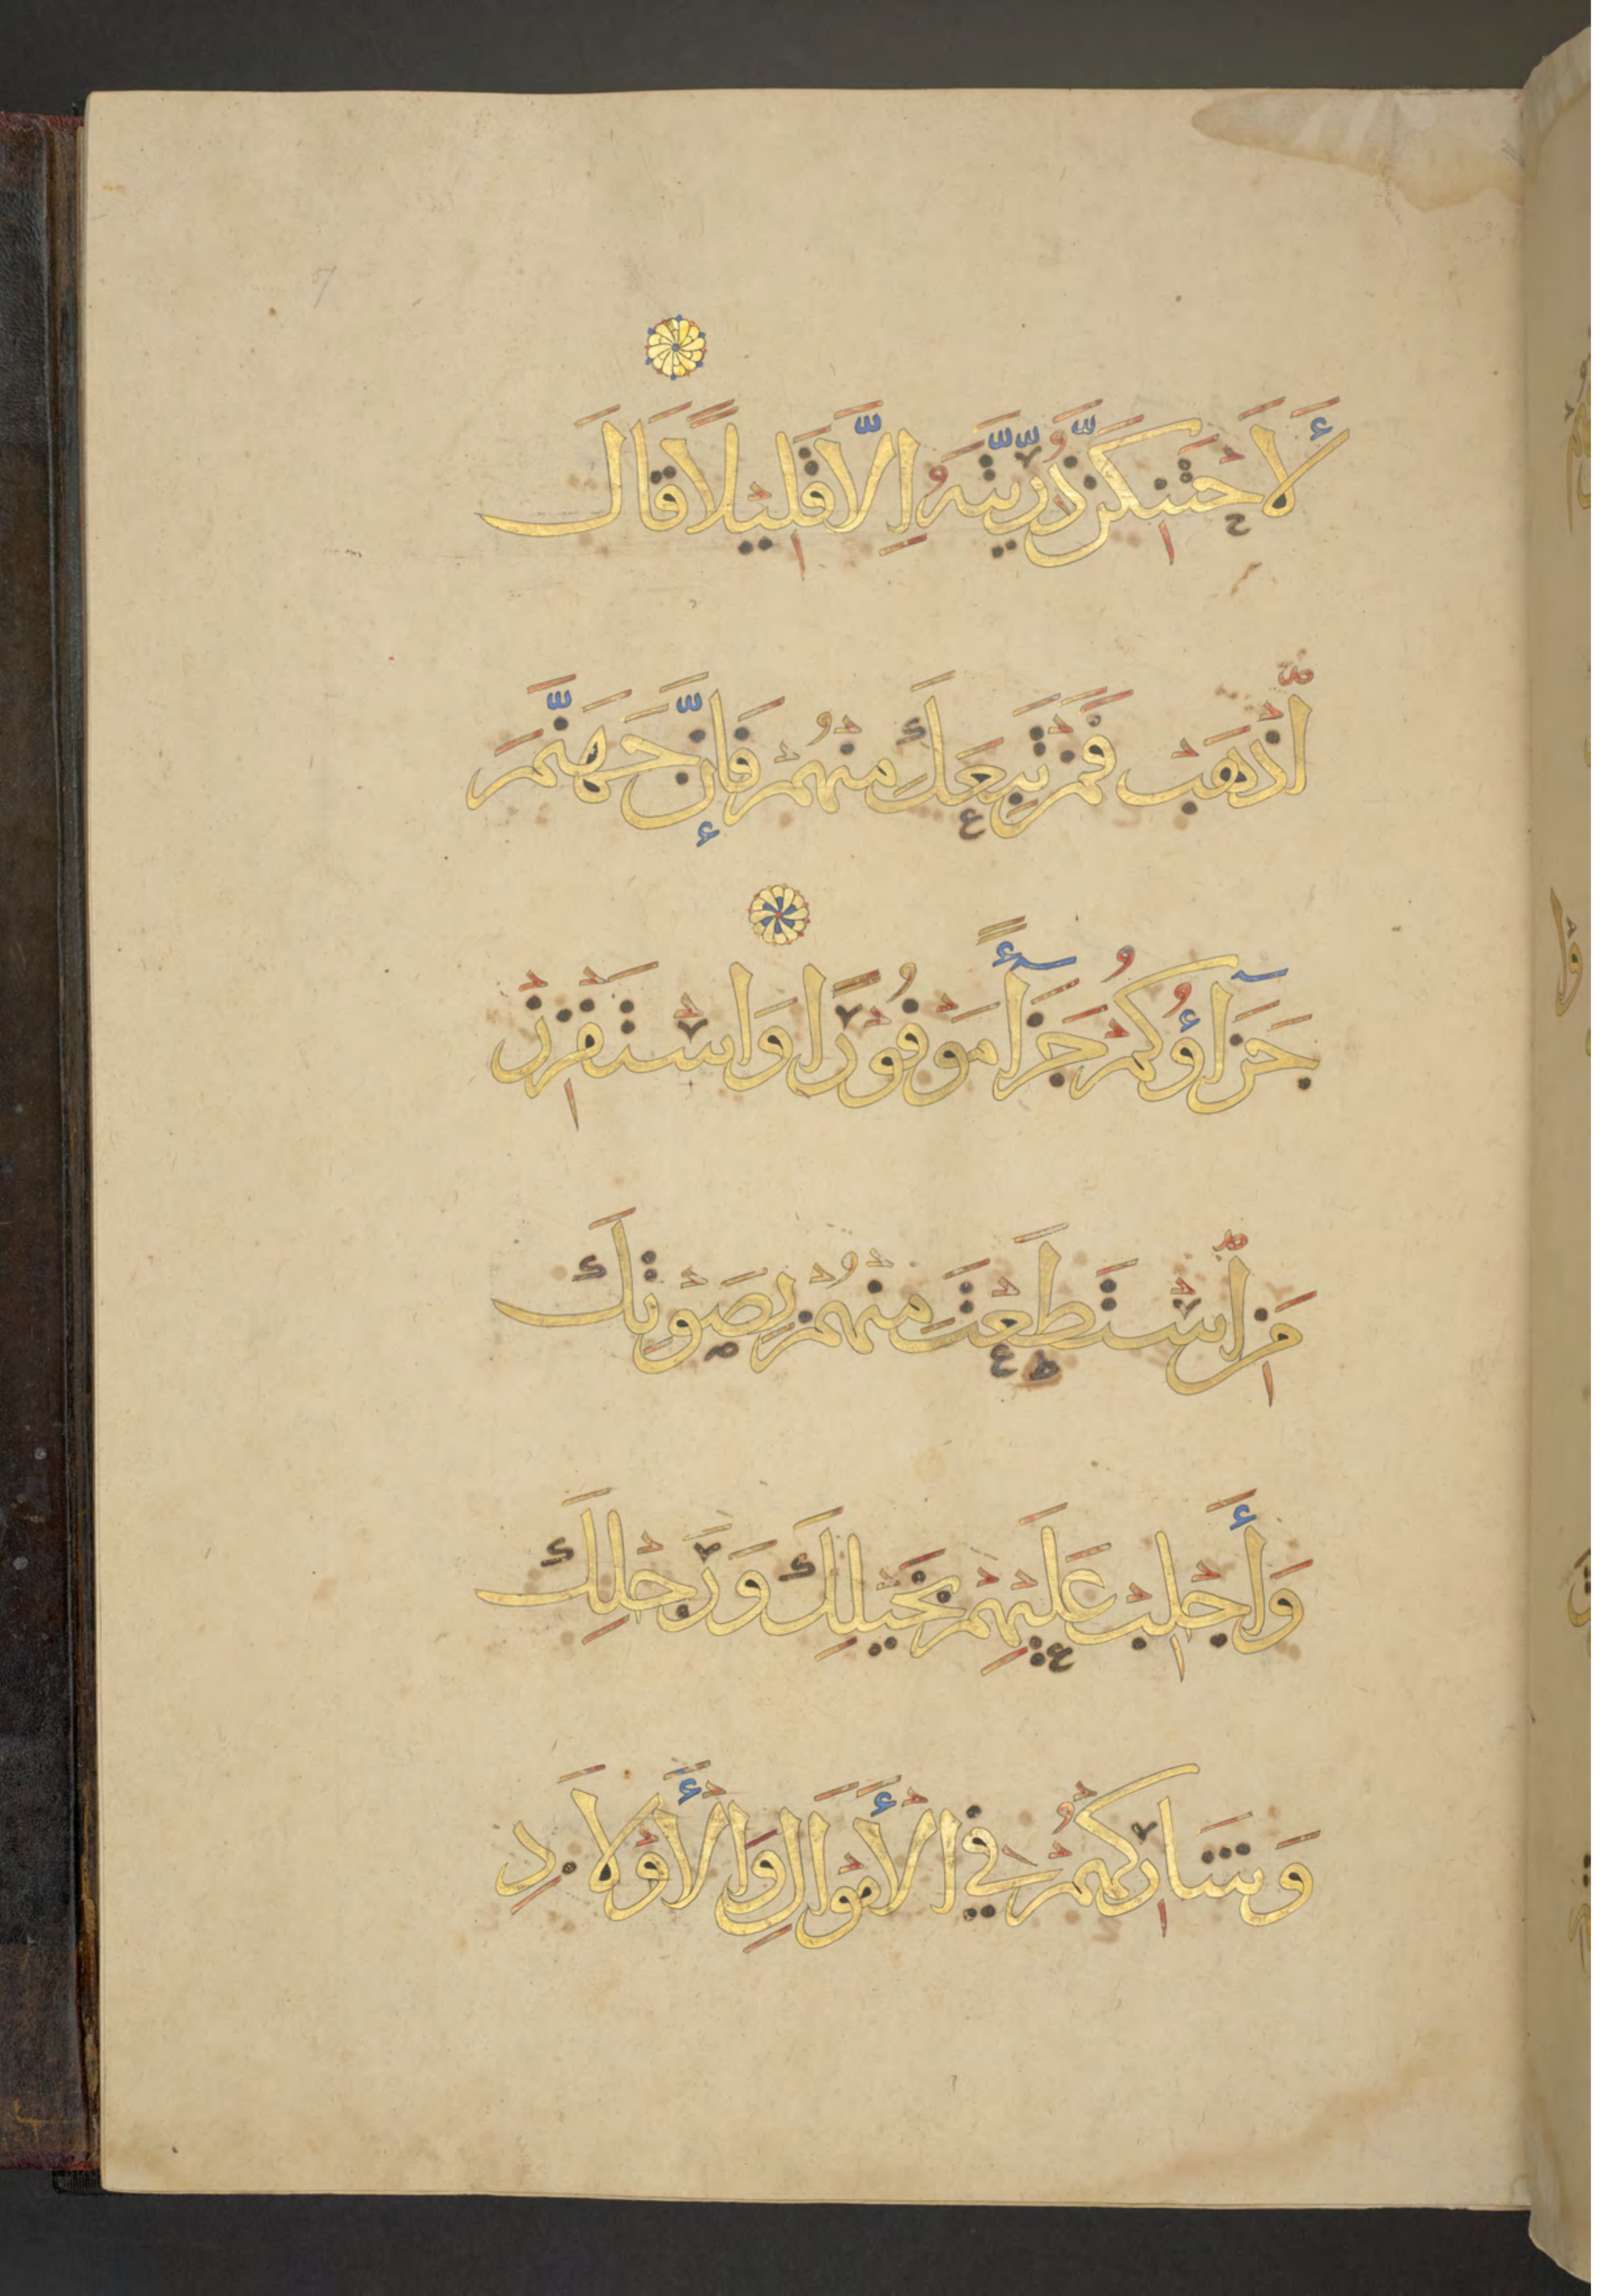 لَأَحْتَنِكَنَّ ذُرِّيَّتَهُ إِلَّا قَلِيلًا قَالَ
ٱذْهَبْ فَمَنْ تَبِعَكَ مِنْهُمْ فَإِنَّ جَهَنَّمَ
جَزَآؤُكُمْ جَزَآءً مَوْفُورًا وَاسْتَفْزِزْ
مَنِ ٱسْتَطَعْتَ مِنْهُمْ بِصَوْتِكَ
وَأَجْلِبْ عَلَيْهِمْ بِخَيْلِكَ وَرَجْلِكَ
وَشَارِكْهُمْ فِي الْأَمْوَالِ وَالْأَوْلَادِ